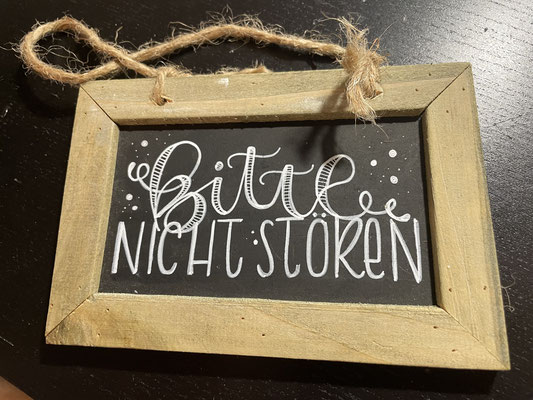 Bitte
NICHT STÖREN